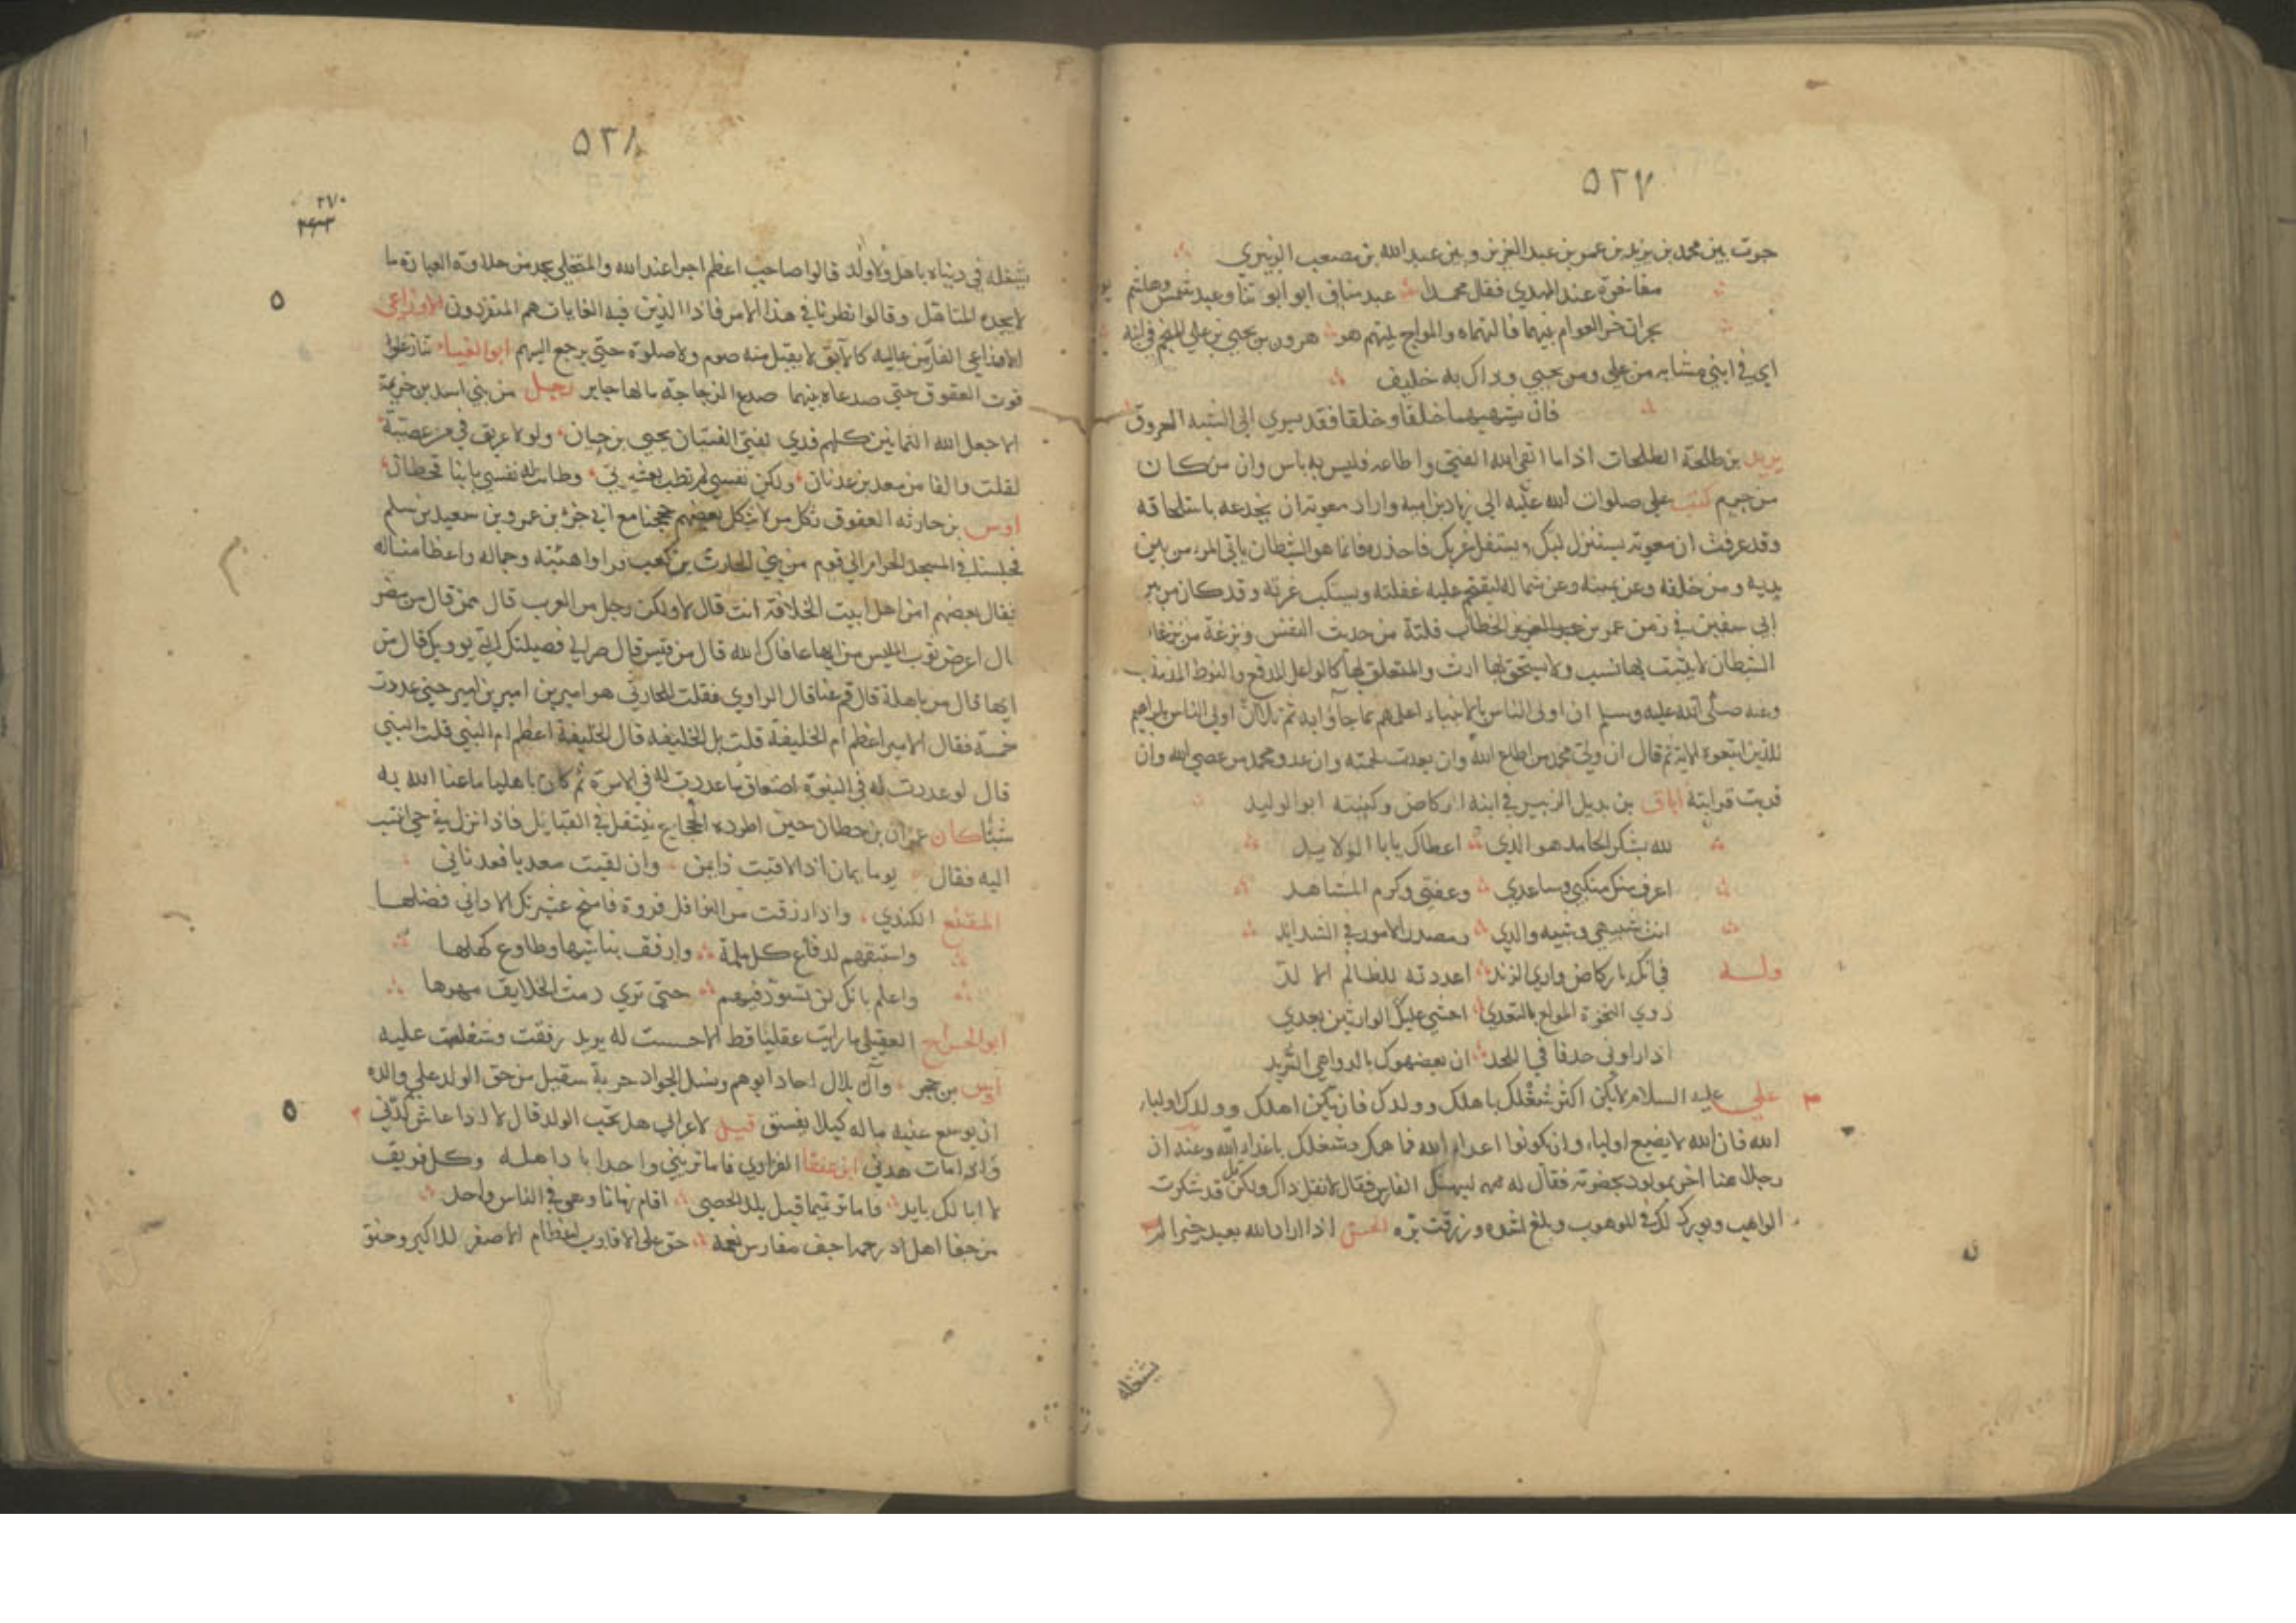 ٥٢٧
جرت بين محمد بن يزيد بن عمر بن عبد العزيز وبين عبد الله بن مصعب الزبيري
مفاخرة عند المهدي فقال محمد عبد مناف ابو ابونا وعبد شمس وهاشم
هو هرون بن يحيى بن علي المنجم في ابنه
اي في ابني مشابه من علي ومن يحيى وذاك به خليق
فان يشبههما خلقا وخلقا فقد يسري الى الشبه العروق
بن طلحة الطلحات اذا ما اتقى الله الفتى واطاعه فليس به باس وان من كان
من جرم كتب علي صلوات الله عليه الى زياد بن ابيه واراد معوية ان يخدعه باستلحاقه
وقد عرفت ان معوية يستنزل لبك ويستفل غربك فاحذره فانما هو الشيطان ياتي المرء من بين
يديه ومن خلفه وعن يمينه وعن شماله ليقتحم عليه غفلته ويستلب غرته وقد كان من
ابي سفين في زمن عمر بن الخطاب فلتة من حديث النفس ونزغة من نزغات
الشيطان لا يثبت بها نسب ولا يستحق بها ارث والمتعلق بها كالواغل المدفع والنوط المذبذب
وعنه صلى الله عليه وسلم ان اولى الناس بالانبياء اعلمهم بما جاؤا به ثم تلا ان اولى الناس بابراهيم
للذين اتبعوه الاية ثم قال ان ولي محمد من اطاع الله وان بعدت لحمته وان عدو محمد من عصى الله وان
قربت قرابته اباق بن بديل الزبيري في ابنه الركاض وكنيته ابو الوليد
لله يشكر الحامد هو الذي اعطاك يابا الولايد
اعرف منك منكبي وساعدي وعفتي وكرم المشاهد
انت شبيهي وشبيه والدي ومصدر الامور في الشدايد
وله فانك يا ركاض واري الزند اعددته للظالم الالد
ذوي النخوة المولع بالتعدي اخشى عليك الوارثين بعدي
اذا راوني حدقا في اللحد ان يعضهوك بالدواهي الربد
علي عليه السلام لا يكن اكثر شغلك باهلك وولدك فان يكن اهلك وولدك اولياء
الله فان الله لا يضيع اولياءه وان يكونوا اعداء الله فما همك وشغلك باعداء الله وعنه ان
رجلا هنا اخر بمولود بحضرته فقال له ليهنك الفارس فقال لا تقل ذاك ولكن قل شكرت
الواهب وبورك لك في الموهوب وبلغ اشده ورزقت بره الحسن اذا اراد الله بعبد خيرا لم
يشغله
٥٢٨
٢٧٠
يشغله في دنياه باهل ولا ولد قالوا صاحب اعظم اجرا عند الله والمتخلي يجد من حلاوة العبادة ما
لا يجده المتاهل وقالوا نظرنا في هذا الامر فاذا الذين فيه الغايات هم المتفردون الاوزاعي
الفار من عياله كالآبق لا يقبل منه صوم ولا صلوة حتى يرجع اليهم ابو العيناء تنازعوا
ثوب العقوق حتى صدعاه بينهما صدع الزجاجة ما لها جابر رجل من بني اسد بن خزيمة
الا جعل الله اليمانين كلهم فدى لفتى الفتيان يحيى بن حيان ولولا عريق في من عصبية
لقلت والفا من معد بن عدنان ولكن نفسي لم تطب بعشيرتي وطابت له نفسي بابنا قحطان
اوس بن حارثة العقوق ثكل من لا ثكل حججنا مع ابي جزء بن عمرو بن سعيد بن سلم
فجلسنا في المسجد الحرام الى قوم من بني الحارث بن كعب فراوا هيئته وجماله واعظامنا له
فقال بعضهم امن اهل بيت الخلافة انت قال لا ولكن رجل من العرب قال ممن قال من مضر
قال اعرض ثوب الملبس من ايها عافاك الله قال من قيس قال صر الى فصيلتك التي تؤويك قال من
ايها قال من باهلة قال قم عنا قال الراوي فقلت للحارثي هو امير بن امير بن امير حتى عددت
خمسة فقال الامير اعظم ام الخليفة قلت بل الخليفة قال الخليفة اعظم ام النبي قلت النبي
قال لو عددت له في النبوة اضعاف ما عددت له في الامرة ثم كان باهليا ما عبا الله به
شيئا كان عمران بن حطان حين اطرده الحجاج ينتقل في القبايل فاذا نزل بحي انتسب
اليه فقال يوما يمان اذا لاقيت ذا يمن وان لقيت معديا فعدناني
المقنع الكندي واذا رزقت من النوافل ثروة فامنح عشيرتك الاداني فضلها
واستبقهم لدفاع كل ملمة وارفق بناشيها وطاوع كهلها
واعلم بانك لن تسود فيهم حتى ترى دمث الخلايق سهلها
ابو الجراح العقيلي ما رايت عقليا قط الا حسست له
اوس بن حجر سقيل من حق الولد على والده
ان يوسع عليه ماله كيلا يفسق قيل لاعرابي هل تحب الولد قال لا اذا عاش كدني
واذا مات هدني ابن عنقا الفزاري فاما تريني واحدا باد اهله وكل فريق
لا ابا لك بايد فاما تميما قبل يلد الحصى اقام زمانا وهو في الناس واحد
من جفا اهل رحمه حق على الاقارب اعظام الاصغر للاكبر وحنو